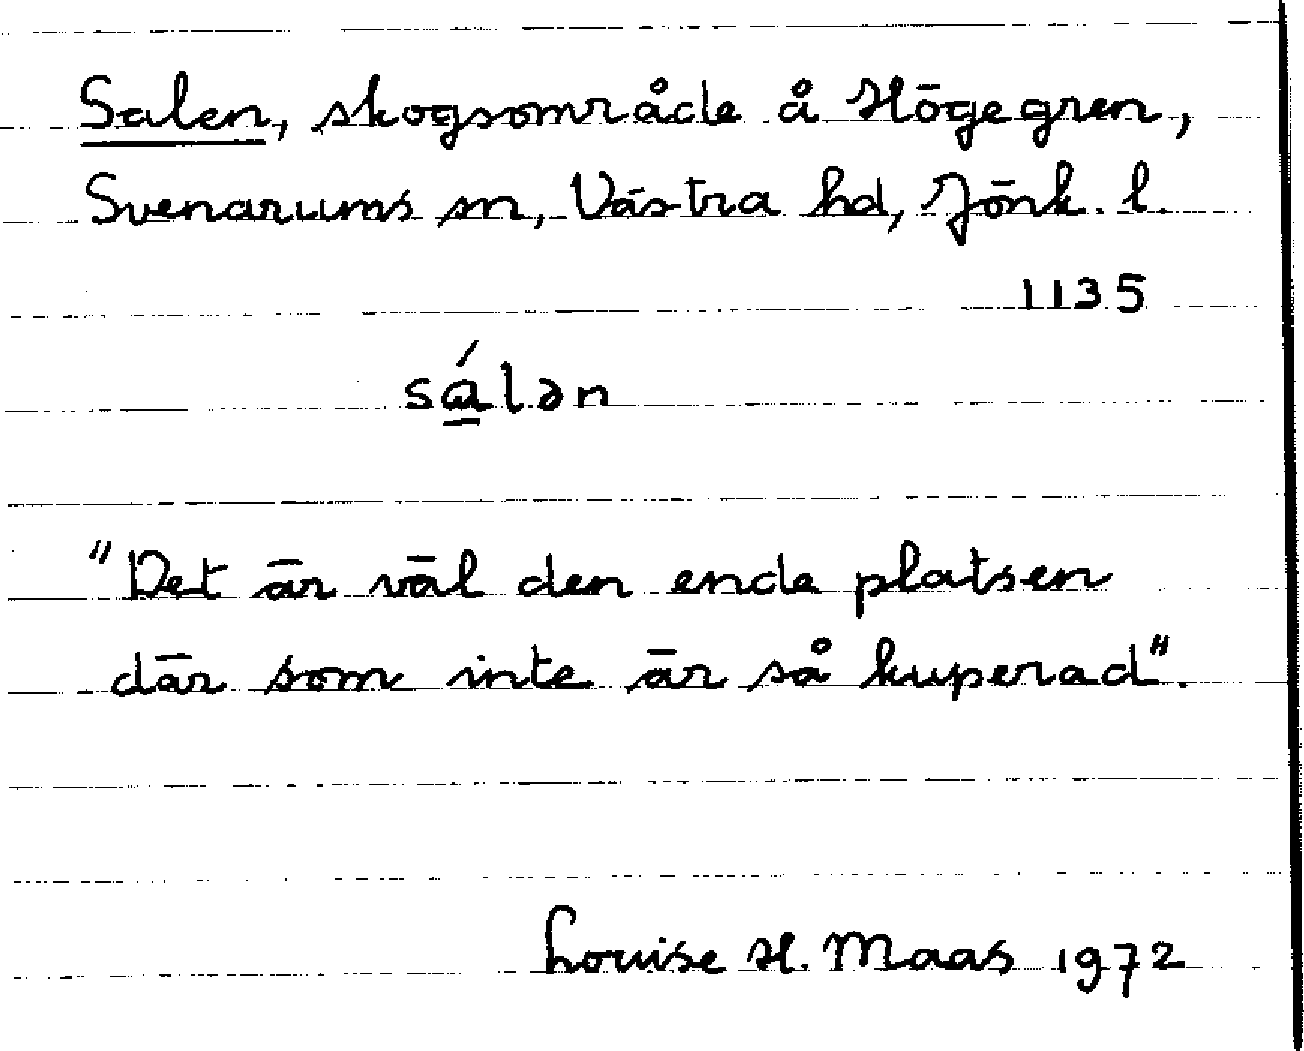 Salen, skogsområde å Högegren,
Svenarums sn, Västra hd, Jönk. l.
1135
sá̱lən
"Det är väl den enda platsen
där som inte är så kuperad".
Louise H. Maas 1972